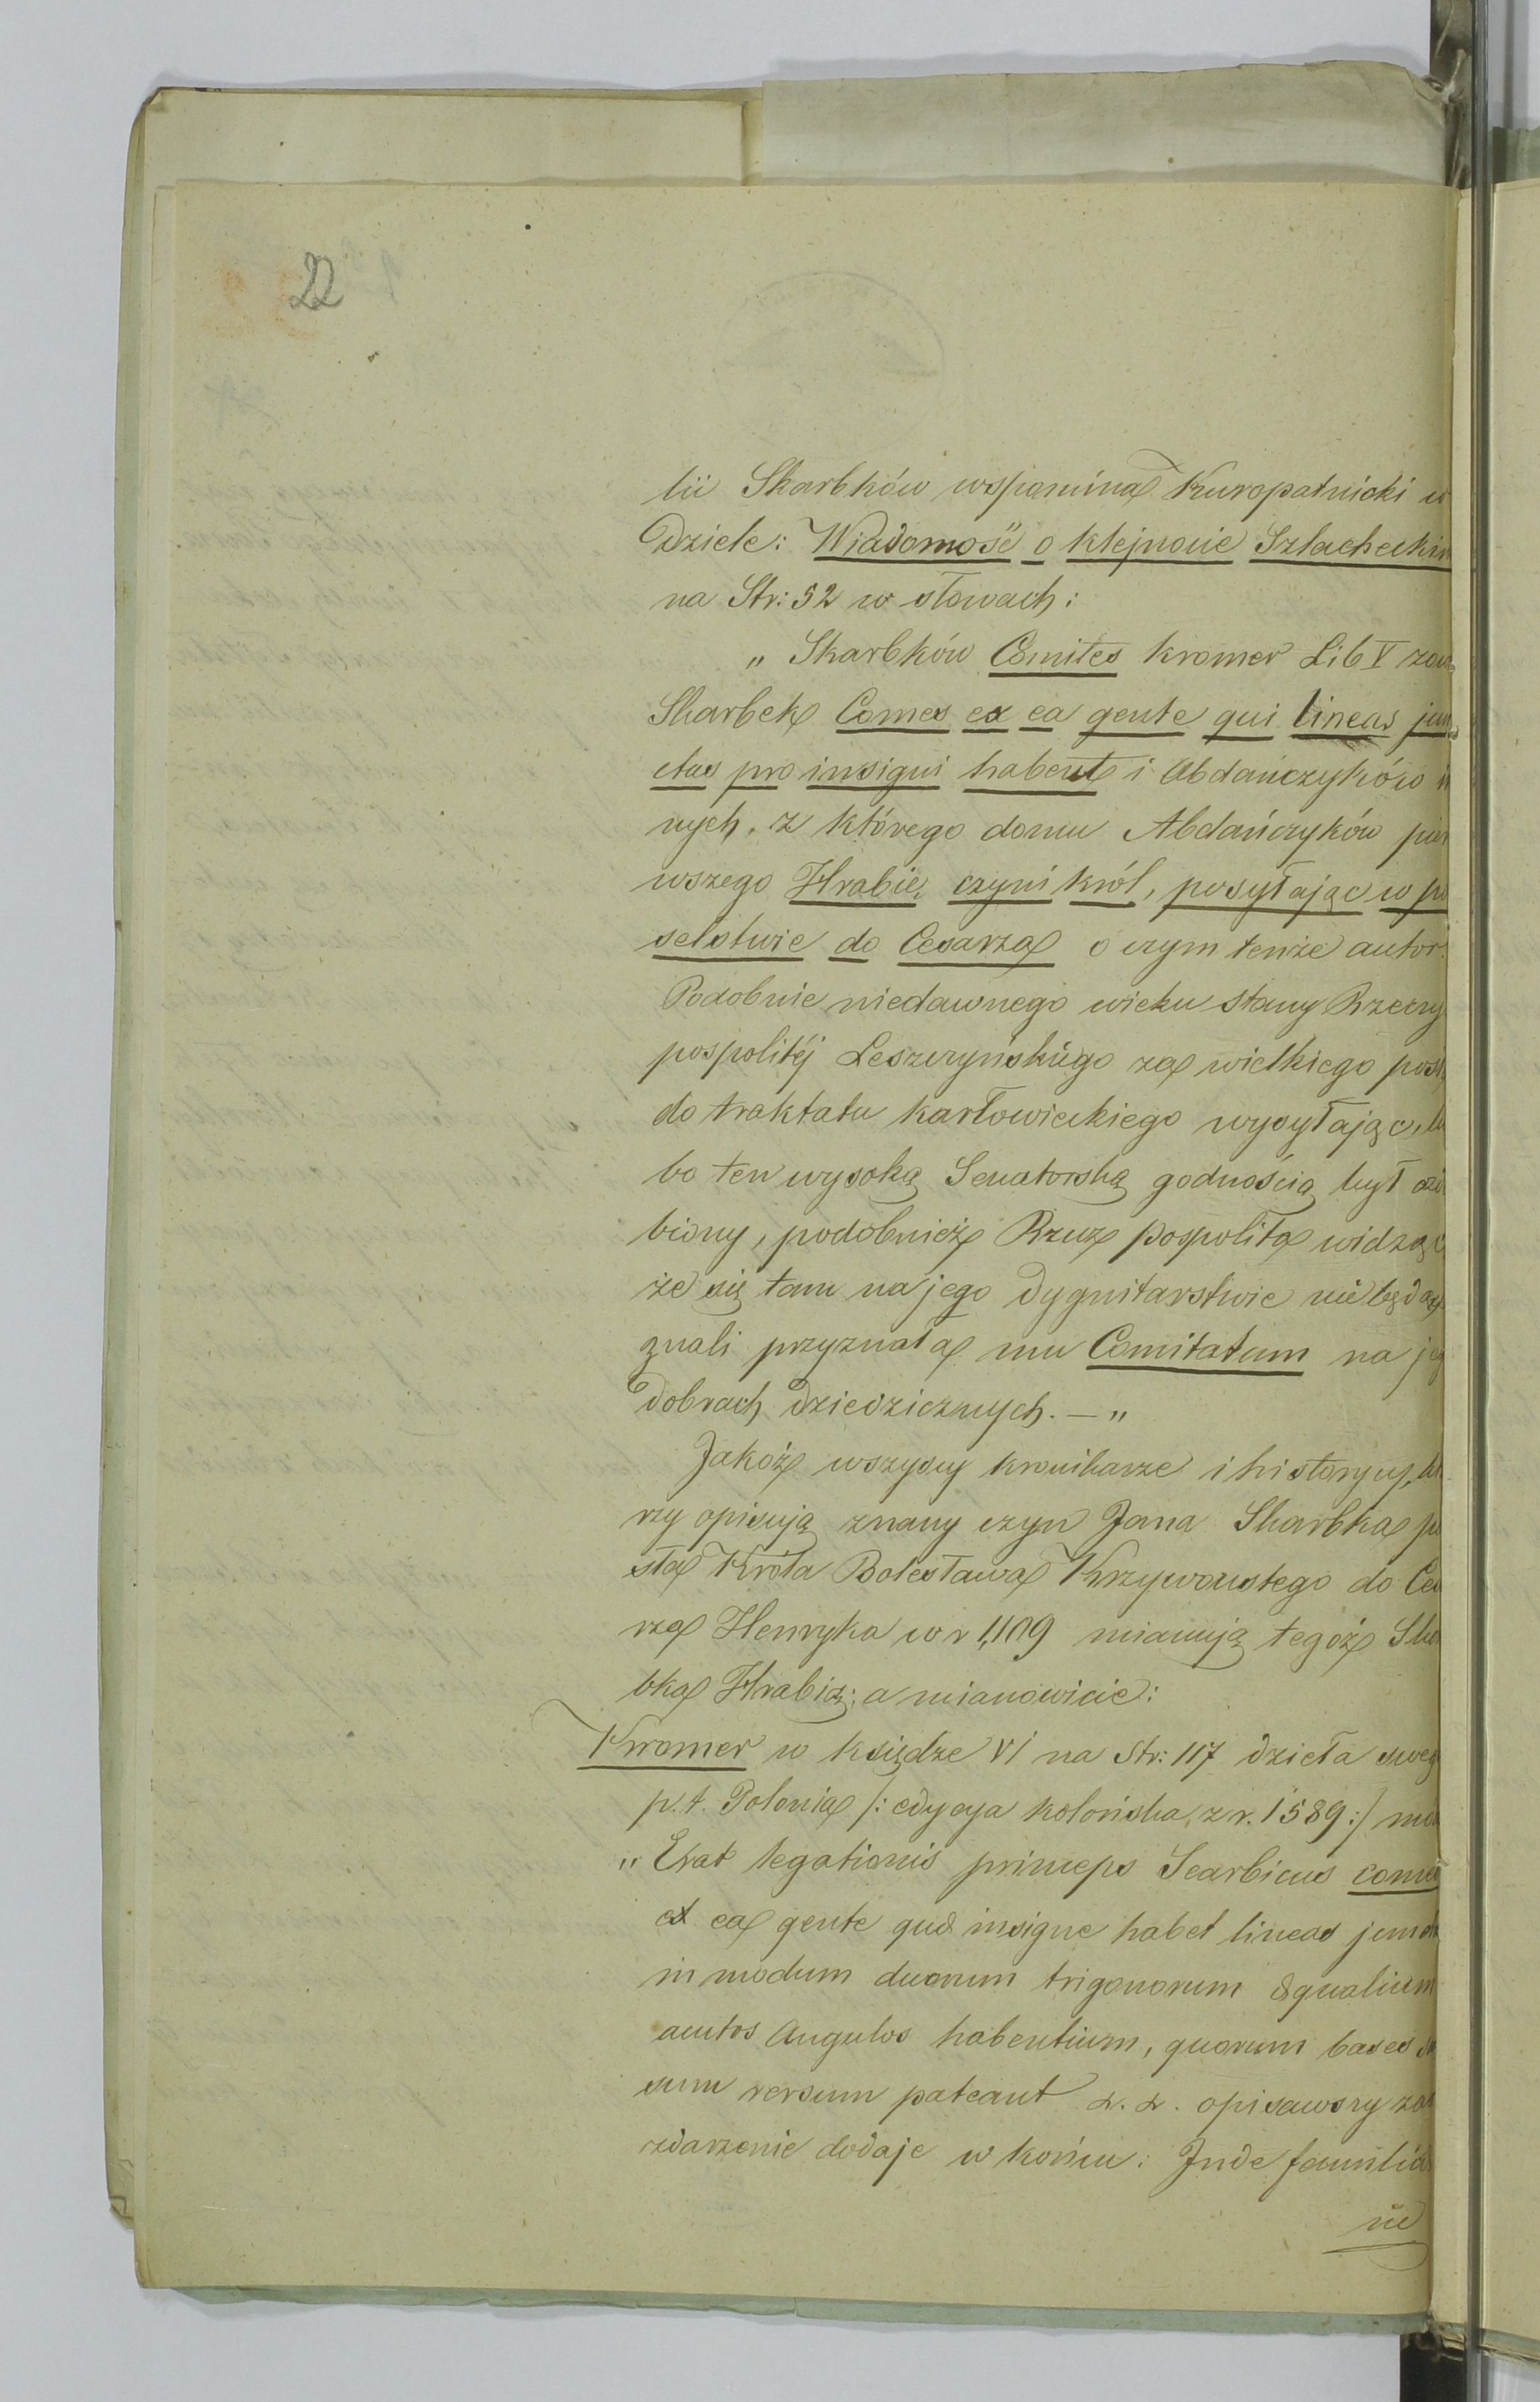 22
lii Skarbków wspomina Kuropatnicki w
Dziele: Wiadomość o klejnocie Szlacheckim
na Str: 52 w słowach:
„ Skarbków Comites Kromer Lib V zowie
Skarbek Comes ex ea gente qui lineas jun
ctas pro insigni habent i Abdańczyków in
nych, z którego domu Abdańczyków pier
wszego Hrabię czyni król, posyłając w po
selstwie do Cesarza o czym tenże autor.
Podobnie niedawnego wieku stany Rzeczy
pospolitéj Leszczyńskiego za wielkiego posła
do traktatu karłowickiego wysyłając, lu
bo ten wysoką Senatorską godnością był ozdo
biony, podobnież Rzecz pospolita widząc
że się tam na jego Dygnitarstwie nie będą
znali przyznała mu Comitatum na jeg
dobrach dziedzicznych. — „
Jakoż wszyscy kronikarze i historycy, któ
rzy opisują znany czyn Jana Skarbka po
sła Króla Bolesława Krzywoustego do Cesa
rza Henryka w r 1,109 mianują tegoż Skar
bka Hrabią; a mianowicie:
Kromer w księdze VI na Str: 117 dzieła sweg
p. t. Polonia /: edycya kolońska, z r. 1589 :/
„ Erat legationis princeps Scarbicus comes
ex ea gente quæ insigne habet lineas junctas
in modum duorum trigonorum æqualium
acutos Angulos habentium, quorum bases
sum versum pateant &. &. opisawszy
zdarzenie dodaje w końcu: Inde familiæ